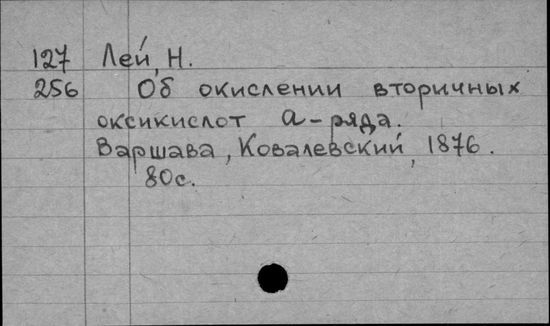 127 Лей, Н.
256 Об окислении вторичных
оксикислот a-ряда.
Варшава, Ковалевский, 1876.
80с.